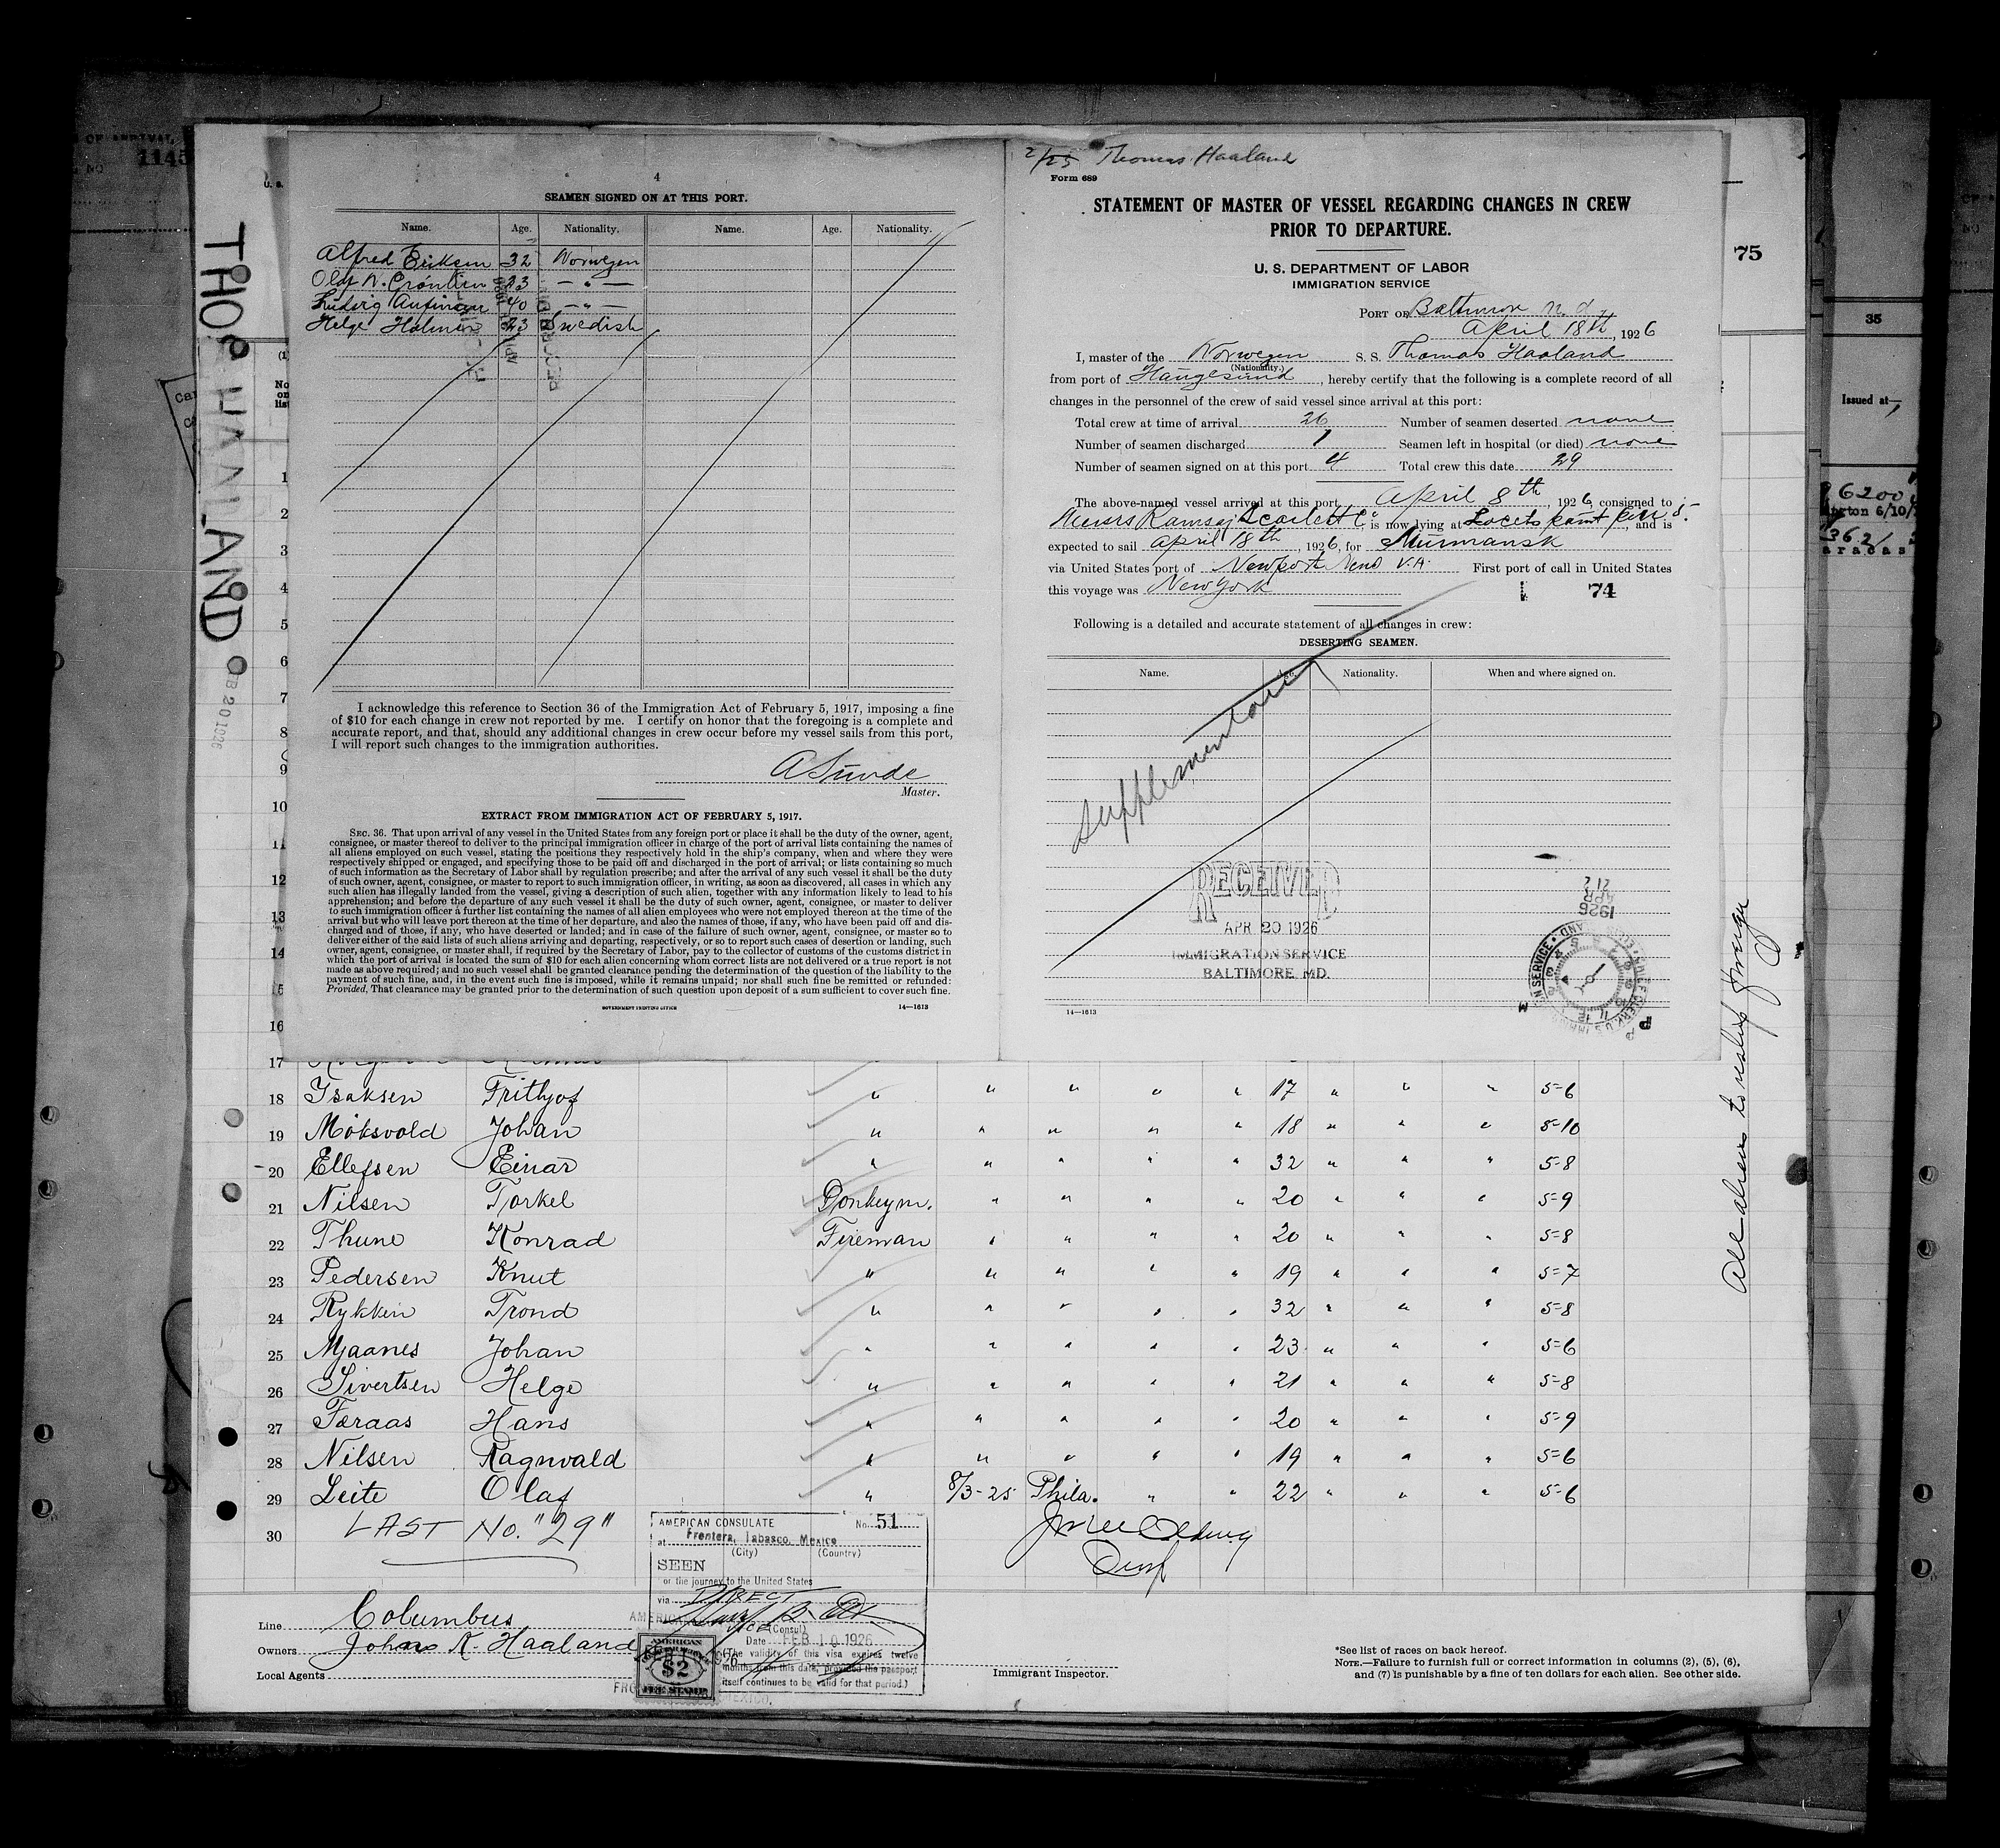 4
SEAMEN SIGNED ON AT THIS PORT.
Name. Age. Nationality. Name. Age. Nationality.
Alfred Eriksen 32 Norwegen
Olaf N. Grönlien 23 — " —
Ludvig 40 — " —
Helge Holmer 23 Swedish
I acknowledge this reference to Section 36 of the Immigration Act of February 5, 1917, imposing a fine
of $10 for each change in crew not reported by me. I certify on honor that the foregoing is a complete and
accurate report, and that, should any additional changes in crew occur before my vessel sails from this port,
I will report such changes to the immigration authorities.
A Sunde
Master.
EXTRACT FROM IMMIGRATION ACT OF FEBRUARY 5, 1917.
SEC. 36. That upon arrival of any vessel in the United States from any foreign port or place it shall be the duty of the owner, agent,
consignee, or master thereof to deliver to the principal immigration officer in charge of the port of arrival lists containing the names of
all aliens employed on such vessel, stating the positions they respectively hold in the ship's company, when and where they were
respectively shipped or engaged, and specifying those to be paid off and discharged in the port of arrival; or lists containing so much
of such information as the Secretary of Labor shall by regulation prescribe; and after the arrival of any such vessel it shall be the duty
of such owner, agent, consignee, or master to report to such immigration officer, in writing, as soon as discovered, all cases in which any
such alien has illegally landed from the vessel, giving a description of such alien, together with any information likely to lead to his
apprehension; and before the departure of any such vessel it shall be the duty of such owner, agent, consignee, or master to deliver
to such immigration officer a further list containing the names of all alien employees who were not employed thereon at the time of the
arrival but who will leave port thereon at the time of her departure, and also the names of those, if any, who have been paid off and dis-
charged and of those, if any, who have deserted or landed; and in case of the failure of such owner, agent, consignee, or master so to
deliver either of the said lists of such aliens arriving and departing, respectively, or so to report such cases of desertion or landing, such
owner, agent, consignee, or master shall, if required by the Secretary of Labor, pay to the collector of customs of the customs district in
which the port of arrival is located the sum of $10 for each alien concerning whom correct lists are not delivered or a true report is not
made as above required; and no such vessel shall be granted clearance pending the determination of the question of the liability to the
payment of such fine, and, in the event such fine is imposed, while it remains unpaid; nor shall such fine be remitted or refunded:
Provided, That clearance may be granted prior to the determination of such question upon deposit of a sum sufficient to cover such fine.
GOVERNMENT PRINTING OFFICE 14—1613
2/25 Thomas Haaland
Form 689
STATEMENT OF MASTER OF VESSEL REGARDING CHANGES IN CREW
PRIOR TO DEPARTURE.
U. S. DEPARTMENT OF LABOR
IMMIGRATION SERVICE
PORT OF Baltimore
April 18th, 1926
I, master of the Norwegen S. S. Thomas Haaland
(Nationality.)
from port of Haugesund, hereby certify that the following is a complete record of all
changes in the personnel of the crew of said vessel since arrival at this port:
Total crew at time of arrival 26 Number of seamen deserted none
Number of seamen discharged 1 Seamen left in hospital (or died) none
Number of seamen signed on at this port 4 Total crew this date 29
The above-named vessel arrived at this port April 8th, 1926, consigned to
Messrs Ramsay Scarlett Co is now lying at Locets point pier 5. and is
expected to sail April 18th, 1926, for Murmansk
via United States port of Newport News V.A. First port of call in United States
this voyage was New York
74
Following is a detailed and accurate statement of all changes in crew:
DESERTING SEAMEN.
Name. Age. Nationality. When and where signed on.
Supplementary
RECEIVED
APR 20 1926
IMMIGRATION SERVICE
BALTIMORE, MD.
14—1613
THOS HAALAND
FEB 20 1926
75
35
Issued at
1145
All aliens to reship foreign
1
2
3
4
5
6
7
8
9
10
11
12
13
14
15
16
17
18 Isaksen Frithjof " " " " " 17 " " " 5-6
19 Moksvold Johan " " " " " 18 " " " 5-10
20 Ellefsen Einar " " " " " 32 " " " 5-8
21 Nilsen Torkel Donkeym. " " " " 20 " " " 5-9
22 Thune Konrad Fireman " " " " 20 " " " 5-8
23 Pedersen Knut " " " " " 19 " " " 5-7
24 Rykken Trond " " " " " 32 " " " 5-8
25 Mjaanes Johan " " " " " 23 " " " 5-6
26 Sivertsen Helge " " " " " 21 " " " 5-8
27 Færaas Hans " " " " " 20 " " " 5-9
28 Nilsen Ragnvald " " " " " 19 " " " 5-6
29 Leite Olaf " 8/3-25 Phila. " " 22 " " " 5-6
30 LAST No. "29"
AMERICAN CONSULATE No. 51
at Frontera, Tabasco, Mexico
(City) (Country)
SEEN
for the journey to the United States
via DIRECT
VICE (Consul)
Date FEB 10 1926
(The validity of this visa expires twelve
months from this date, provided the passport
itself continues to be valid for that period.)
AMERICAN
$2
FEE STAMP
Line Columbus
Owners Johans K. Haaland
Local Agents
Immigrant Inspector.
*See list of races on back hereof.
NOTE.—Failure to furnish full or correct information in columns (2), (5), (6),
and (7) is punishable by a fine of ten dollars for each alien. See other side.